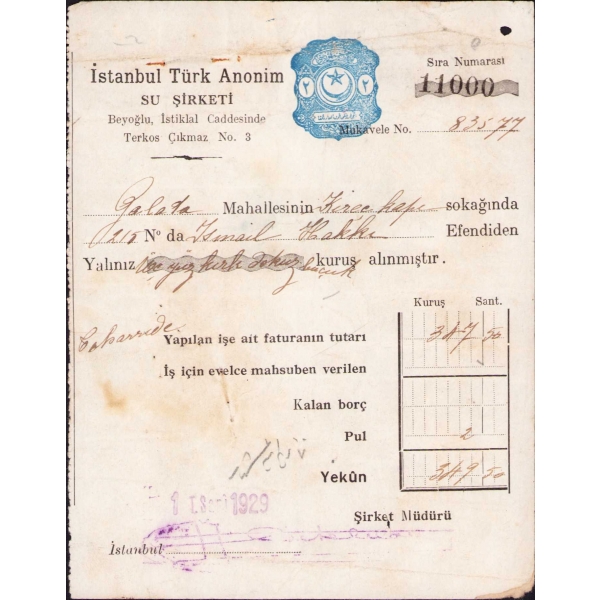 İstanbul Türk Anonim
SU ŞİRKETİ
Beyoğlu, İstiklal Caddesinde
Terkos Çıkmaz No. 3
٢ ٢
Sıra Numarası
11000
Mukavele No. 83577
Galata Mahallesinin Kireç kapı sokağında
215 No da İsmail Hakkı Efendiden
Yalınız üç yüz kırk dokuz buçuk kuruş alınmıştır.
Kuruş Sant.
Yapılan işe ait faturanın tutarı 347 50
İş için evelce mahsuben verilen
Kalan borç
Pul 2
Yekûn 349 50
1 T.Sani 1929
Şirket Müdürü
İstanbul